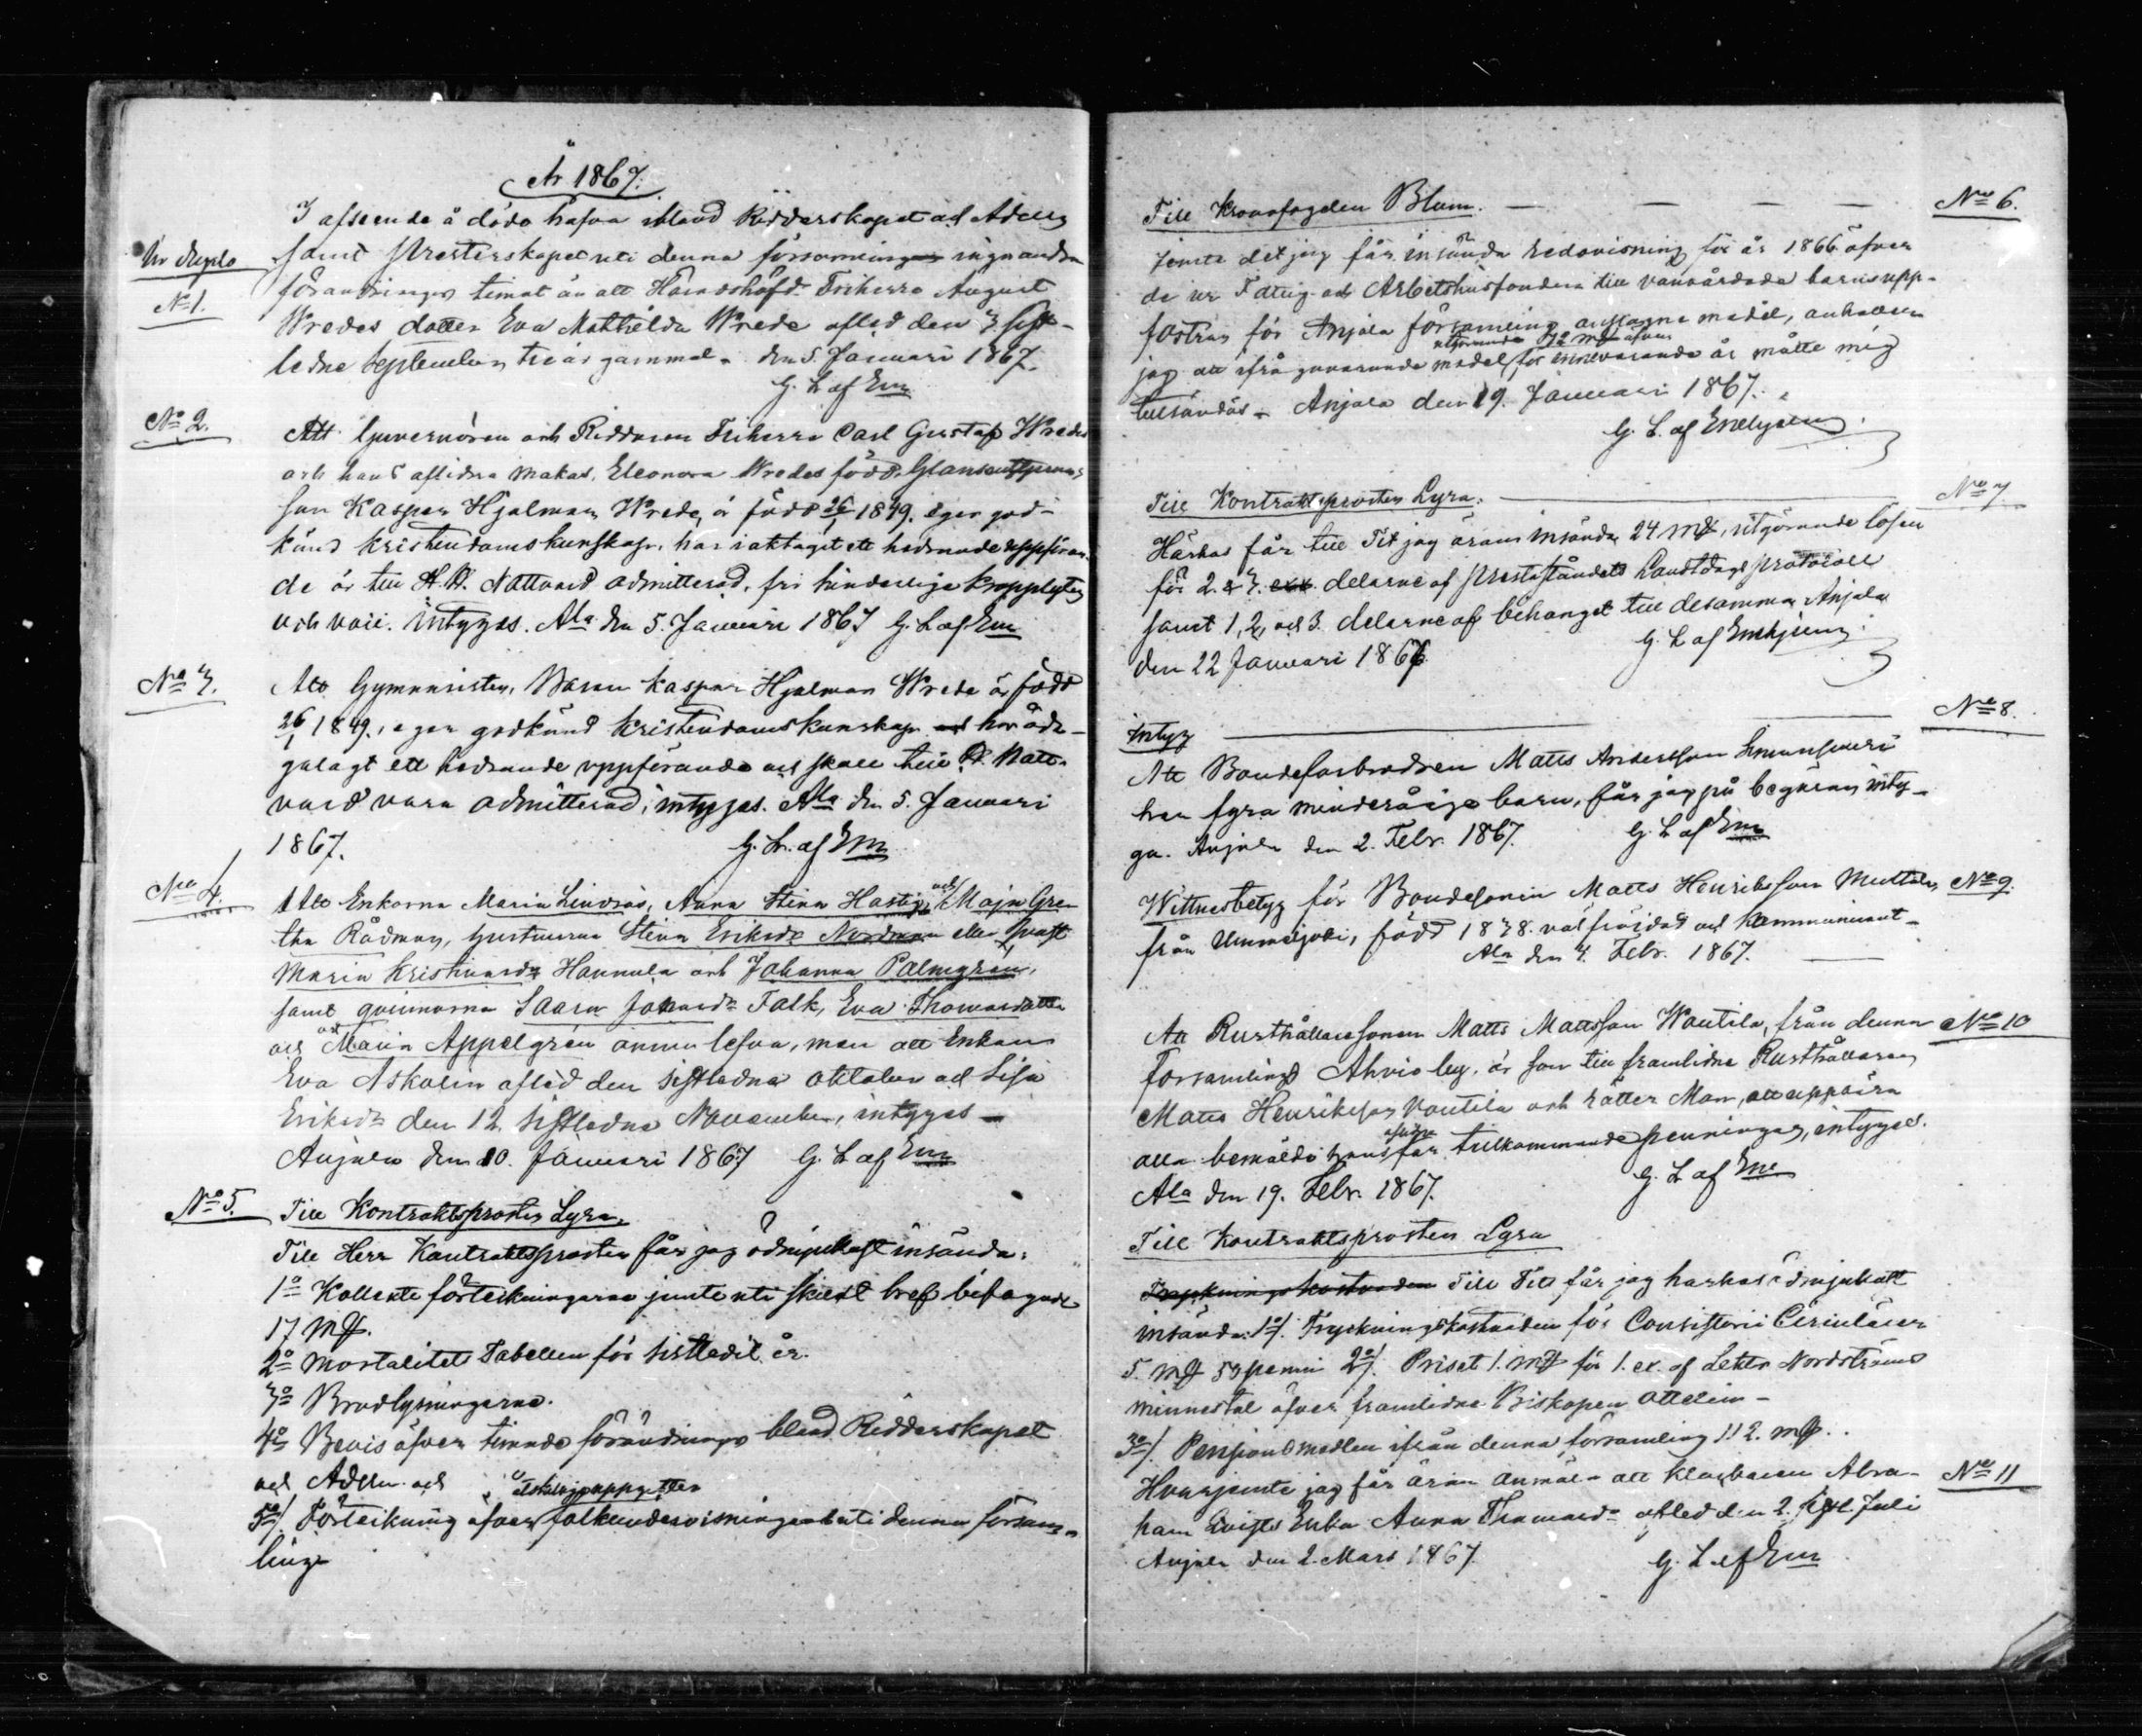 År 1867.
I afseende å döda hafva ibland Ridderskapet och Adeln
In duplo
samt Presterskapet uti denna församling inga andra
No 1.
förändringar timat än att Häradshöfd. Friherre August
Wredes dotter Eva Mathilda Wrede afled den 3 sist-
ledne September tre år gammal. den 5. Januari 1867.
G. L. af Em
No 2.
Att Guvernören och Riddaren Friherre Carl Gustaf Wredes
och hans aflidna makas, Eleonora Wredes född
son Kasper Hjalmar Wrede, är född 26/1 1849. eger god-
känd kristendomskunskap, har iakttagit ett hedrande uppföran-
de är till H. H. Nattvard admitterad, fri hinderliga
och väl. intygas. Ala den 5. Januari 1867 G. L. af Em
No 3.
Att Gymnasisten, Baron Kasper Hjalmar Wrede är född
26/1 1849., eger godkänd kristendomskunskap och har åda-
galagt ett hedrande uppförande och skall till H. Natt-
vard vara admitterad, intygas. Ala den 5. Januari
1867. G. L. af Em
No 4.
Att Enkorna Maria Lindros, Anna Stina Hastig, och Maja Gre
tha Rådman, hustrurna Stina Eriksdr Nordman eller
Maria Kristinasdr Hannula och Johanna Palmgren,
samt qvinnorna Saara Johansdr Falk, Eva Thomasdotter
och Maria Appelgrén ännu lefva, men att Enkan
Eva Askolin afled den sistledne Oktober och Lisa
Eriksdr den 12 sistledne November, intygas -
Anjala den 10. Januari 1867 G. L af Em
No 5. Till Kontraktsprosten Lyra.
Till Herr Kontraktsprosten får jag ödmjukast insända:
1o Kollekte förteckningarne jemte uti skildt bref bifogade
17 mk.
2o Mortalitets Tabellen för sistledit år.
3o Brudlysningarne.
4o Bevis öfver timade förändringar bland Ridderskapet
och Adeln och
5o/. Förteckning öfver folkundervisningen uti denna försam-
ling
Till Kronofogden Blum. — — — — No 6.
Jemte det jag får insända redovisning för år 1866 öfver
de ur Fattig- och Arbetshusfonden till vanvårdade barns upp-
fostran för Anjala församling anslagne medel, anhåller
utgörande 72 mk
jag att ifrågavarande medel för innevarande år måtte mig
tillsändas - Anjala den 19. Januari 1867.
G. L. af Enehjelm.
Till Kontraktsprosten Lyra. No 7
Härhos får till Tit jag äran insända 24 mk, utgörande lösen
för 2. & 3. delarne af Presteståndets Landtdags protocoll
samt 1, 2, och 3. delarne af bihanget till desamma. Anjala
den 22 Januari 1867 G. L af Enehjelm.
No 8.
Intyg
Att Bondesonbrodren Matts Andersson
har fyra minderåriga barn, får jag på begäran inty-
ga. Anjala den 2. Febr. 1867. G. L af Em
Wittnesbetyg för Bondesonen Matts Henriksson Muttala, No 9.
från Ummeljoki, född 1838. välfräjdad och kommunicant -
Ala den 4. Febr. 1867.
Att Rusthållaresonen Matts Mattsson Wantila, från denna No 10
Församlings Ahvio by, är son till framlidne Rusthållaren
Matts Henriksson Wantila och rätter Man, att uppbära
alla bemälde hans aflidne far tillkommande penningar, intygas.
Ala den 19. Febr. 1867. G. L af Em
Till Kontraktsprosten Lyra
Tryckningskostnaden Till Tit får jag härhos ödmjukast
insända: 1o/. Tryckningskostnaden för Consistorii Cirkulärer
5. mk 50 penni 2o/. Priset 1. mk för 1. ex. af Lektor Nordströms
minnestal öfver framlidne Biskopen Ottelin -
3o/. Pensionsmedlen ifrån denna församling 112. mk.
Hvarjemte jag får äran anmäla att Klockaren Abra- No 11
ham Qvists Enka Anna Thomasdr afled den 2. sistl. Juli
Anjala den 2. Mars 1867. G. L af Em